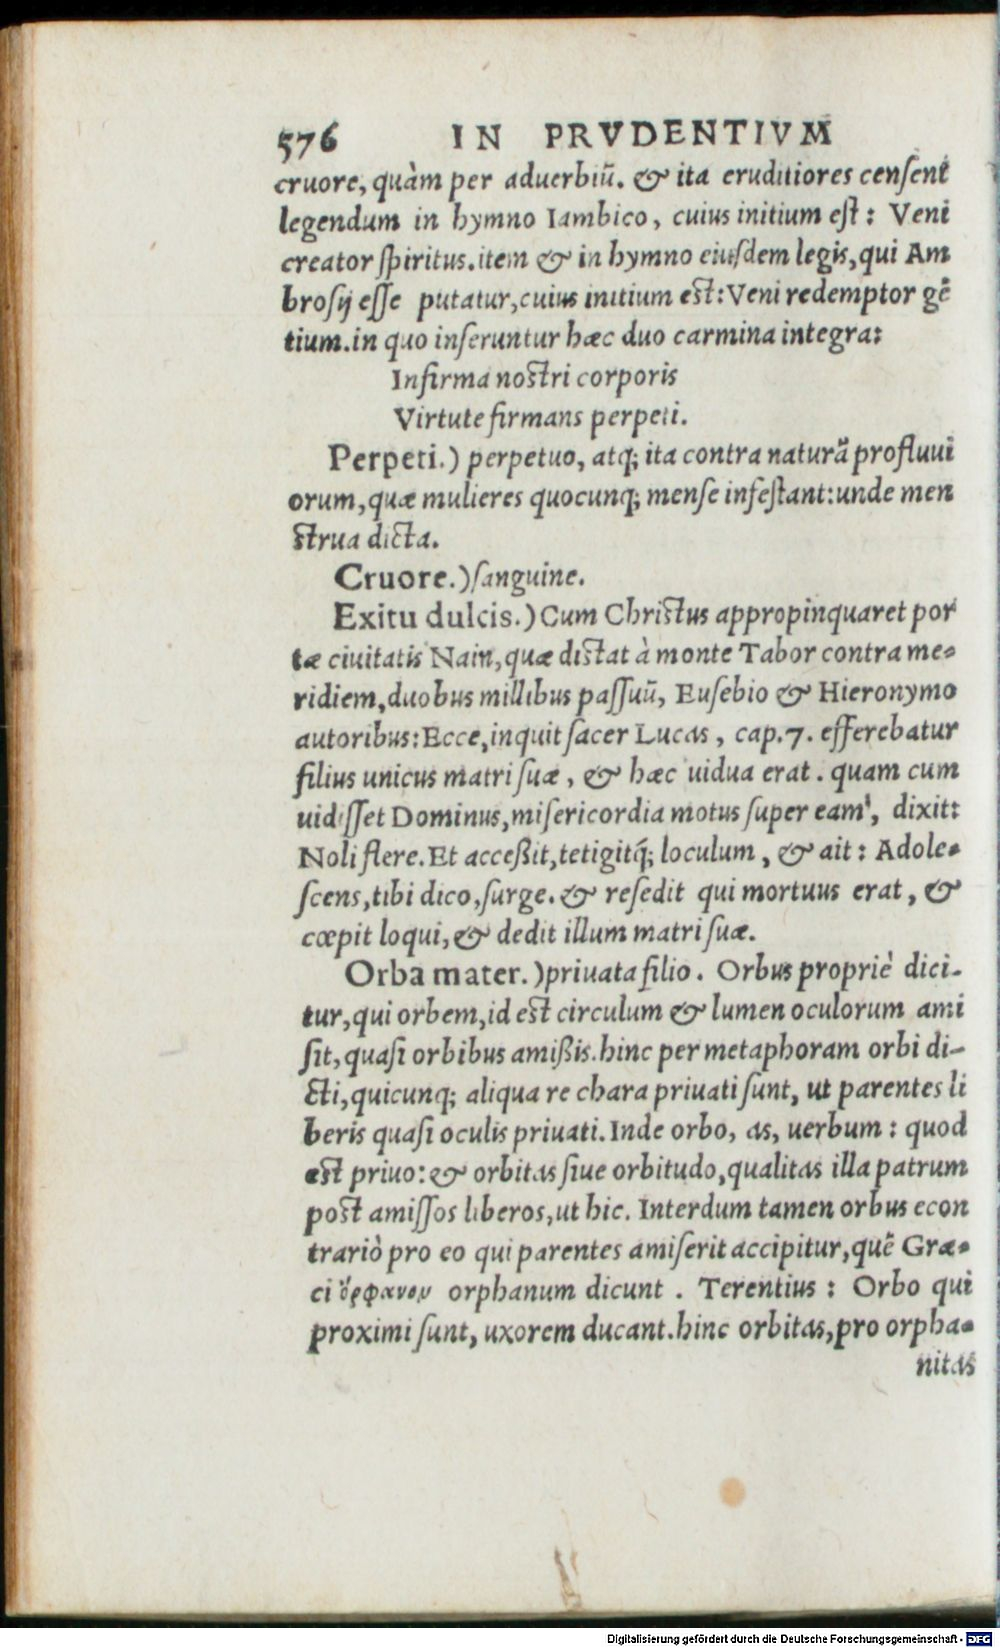 576 IN PRVDENTIVM
cruore, quàm per aduerbiũ. & ita eruditiores censent
legendum in hymno Iambico, cuius initium est: Veni
creator spiritus. item & in hymno eiusdem legis, qui Am
brosij esse putatur, cuius initium est: Veni redemptor gẽ
tium. in quo inseruntur hæc duo carmina integra:
Infirma nostri corporis
Virtute firmans perpeti.
Perpeti.) perpetuo, atq; ita contra naturã profluui
orum, quæ mulieres quocunq; mense infestant: unde men
strua dicta.
Cruore.) sanguine.
Exitu dulcis.) Cum Christus appropinquaret por
tæ ciuitatis Nain, quæ distat à monte Tabor contra me-
ridiem, duobus millibus passuũ, Eusebio & Hieronymo
autoribus: Ecce, inquit sacer Lucas, cap. 7. efferebatur
filius unicus matri suæ, & hæc uidua erat. quam cum
uidisset Dominus, misericordia motus super eam, dixit:
Noli flere. Et acceßit, tetigitq́; loculum, & ait: Adole-
scens, tibi dico, surge. & resedit qui mortuus erat, &
cœpit loqui, & dedit illum matri suæ.
Orba mater.) priuata filio. Orbus propriè dici-
tur, qui orbem, id est circulum & lumen oculorum ami
sit, quasi orbibus amißis. hinc per metaphoram orbi di-
cti, quicunq; aliqua re chara priuati sunt, ut parentes li
beris quasi oculis priuati. Inde orbo, as, uerbum: quod
est priuo: & orbitas siue orbitudo, qualitas illa patrum
post amissos liberos, ut hic. Interdum tamen orbus econ
trariò pro eo qui parentes amiserit accipitur, quẽ Græ-
ci ὄρφανον orphanum dicunt. Terentius: Orbo qui
proximi sunt, uxorem ducant. hinc orbitas, pro orpha-
nitas
Digitalisierung gefördert durch die Deutsche Forschungsgemeinschaft - DFG